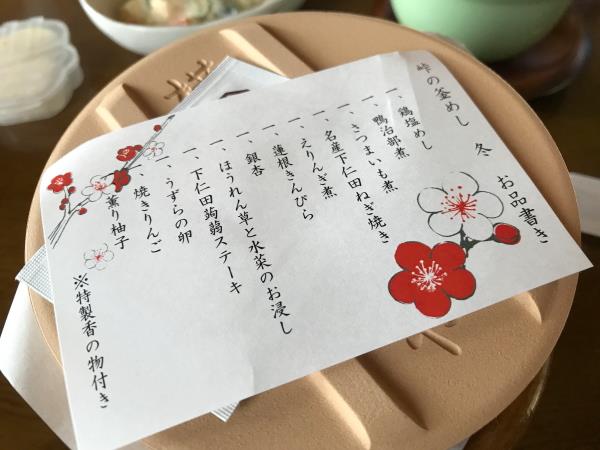 峠の釜めし 冬 お品書き
一、鶏塩めし
一、鴨治部煮
一、さつまいも煮
一、名産下仁田ねぎ焼き
一、えりんぎ煮
一、蓮根きんぴら
一、銀杏
一、ほうれん草と水菜のお浸し
一、下仁田蒟蒻ステーキ
一、うずらの卵
一、焼きりんご
、薫り柚子
※特製香の物付き